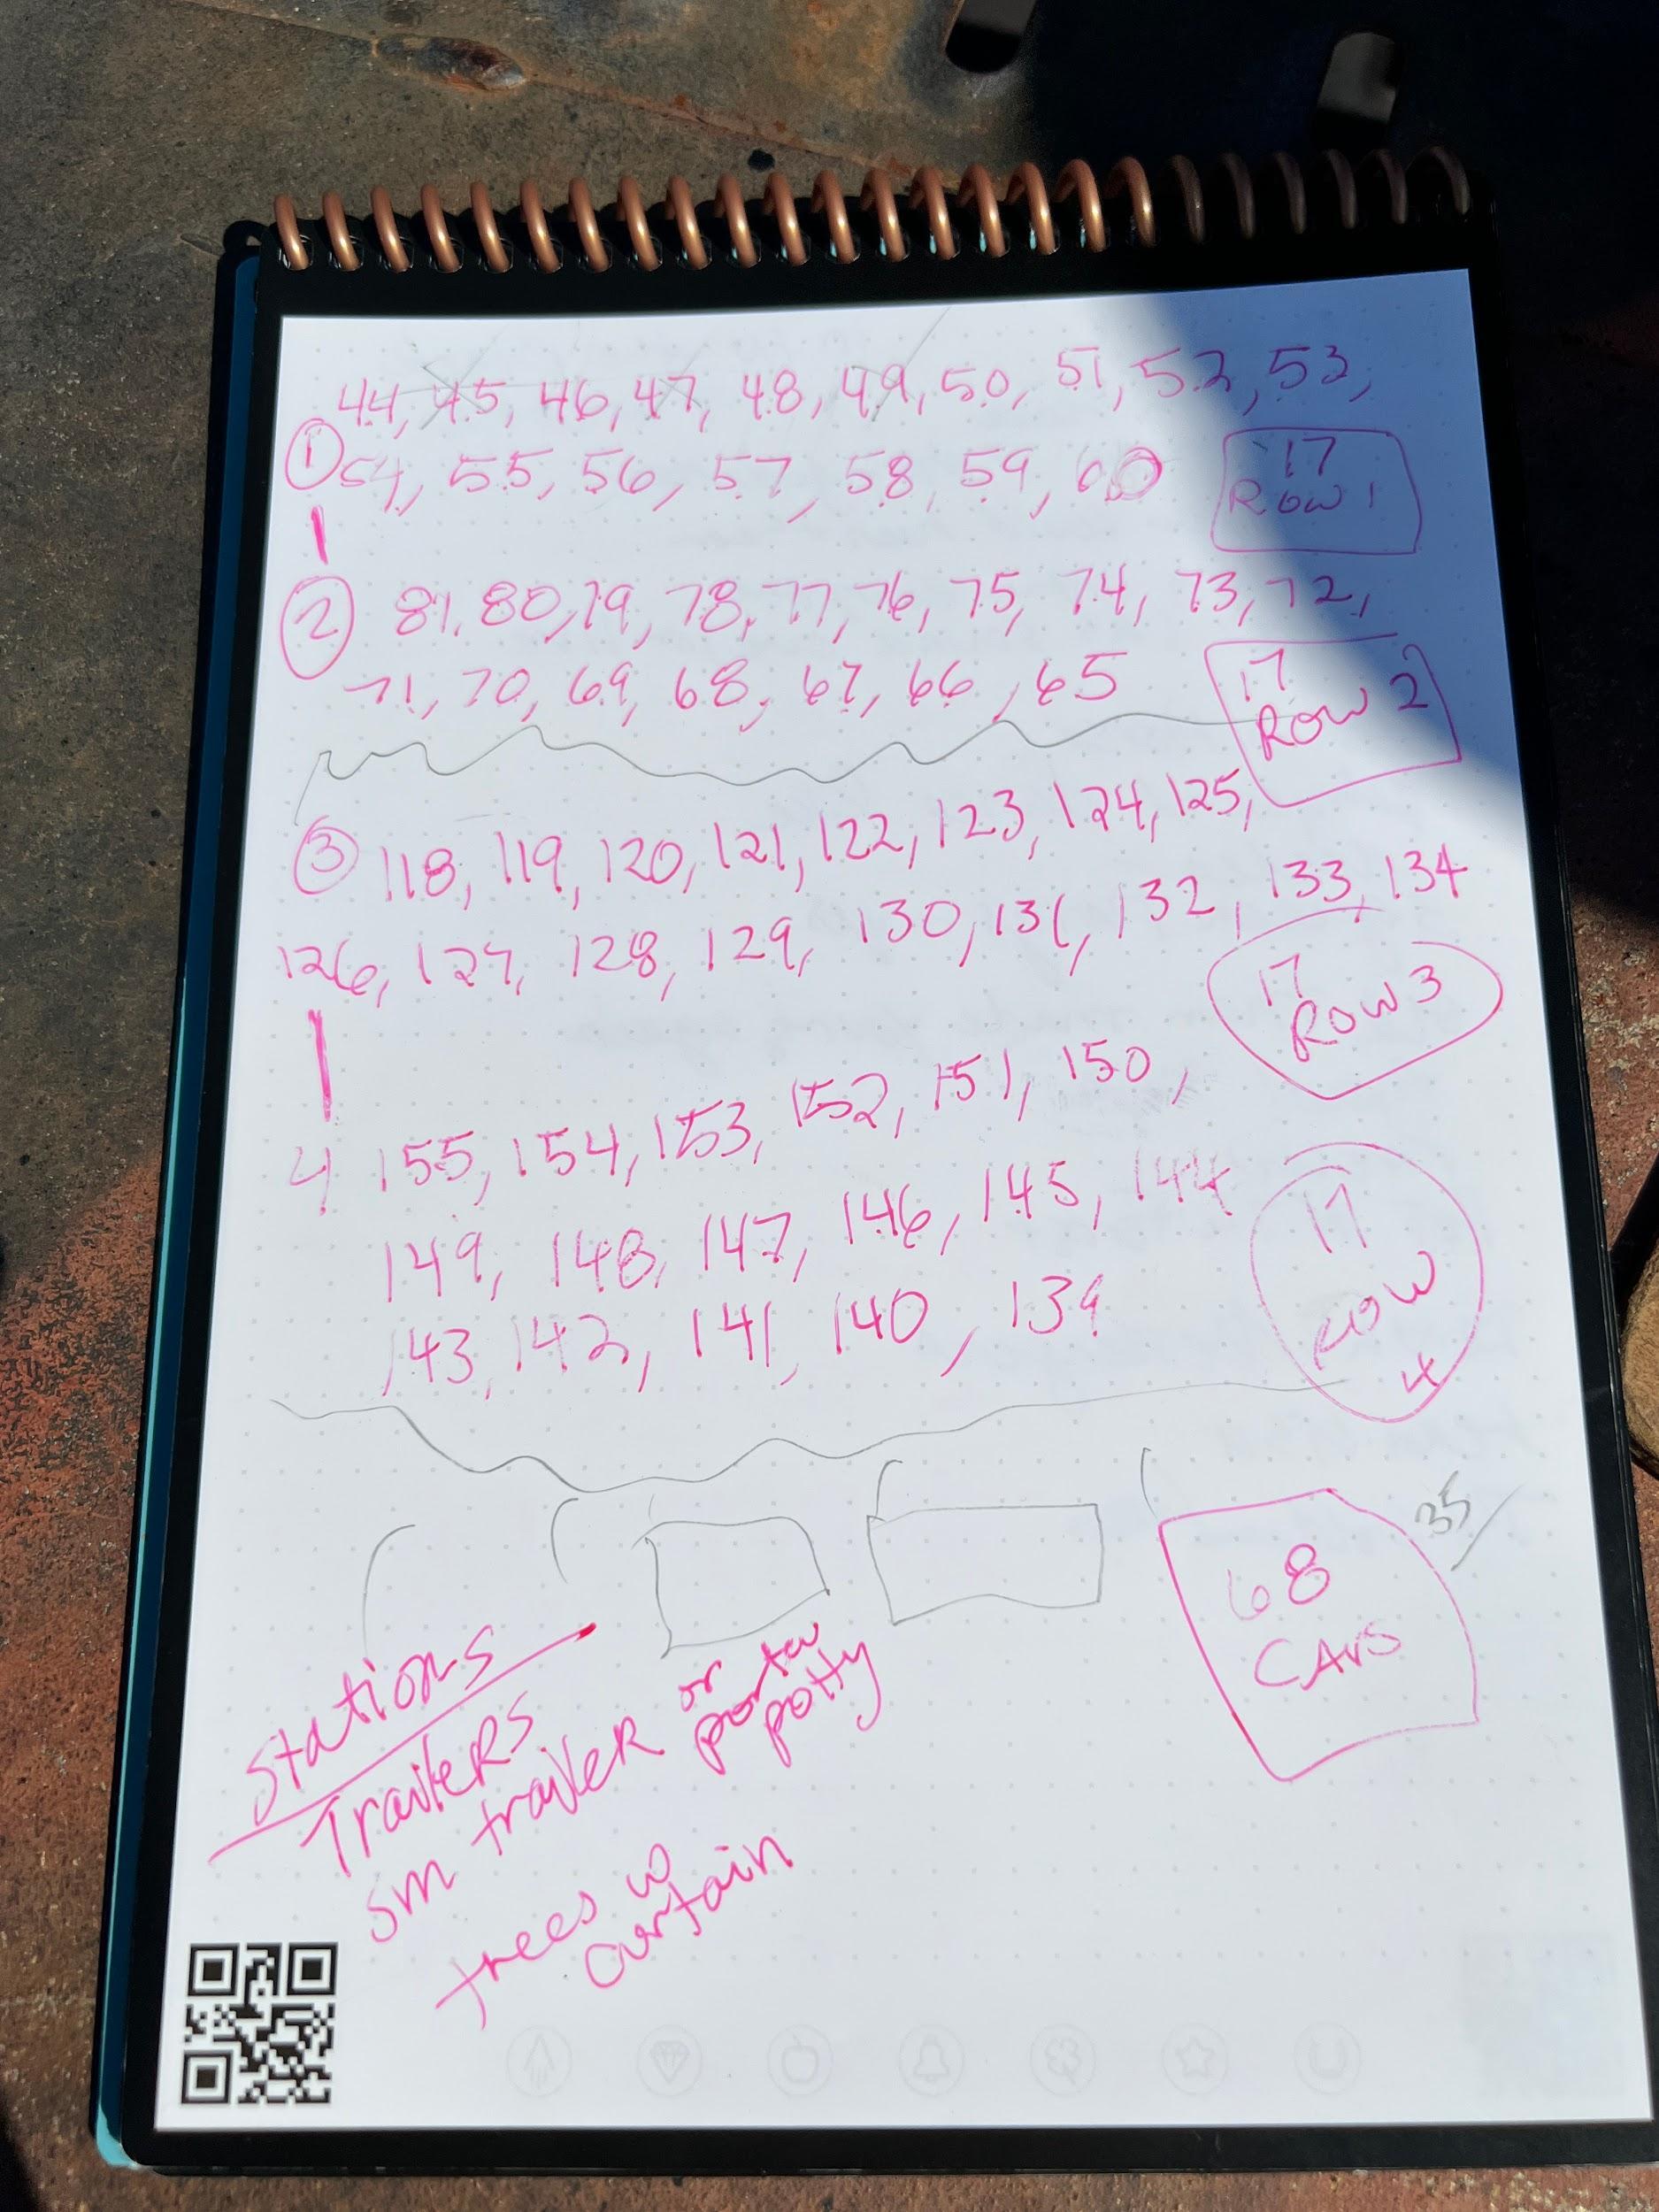 44, 45, 46, 47, 48, 49, 50, 51, 52, 53,
① 54, 55, 56, 57, 58, 59, 60
17
Row 1
② 81, 80, 79, 78, 77, 76, 75, 74, 73, 72,
71, 70, 69, 68, 67, 66, 65
17
Row 2
③ 118, 119, 120, 121, 122, 123, 124, 125,
126, 127, 128, 129, 130, 131, 132, 133, 134
17
Row 3
4 155, 154, 153, 152, 151, 150,
149, 148, 147, 146, 145, 144
143, 142, 141, 140, 139
17
ROW
4
35
68
CArs
Stations
Trailers
sm trailer or porta potty
trees w
curtain